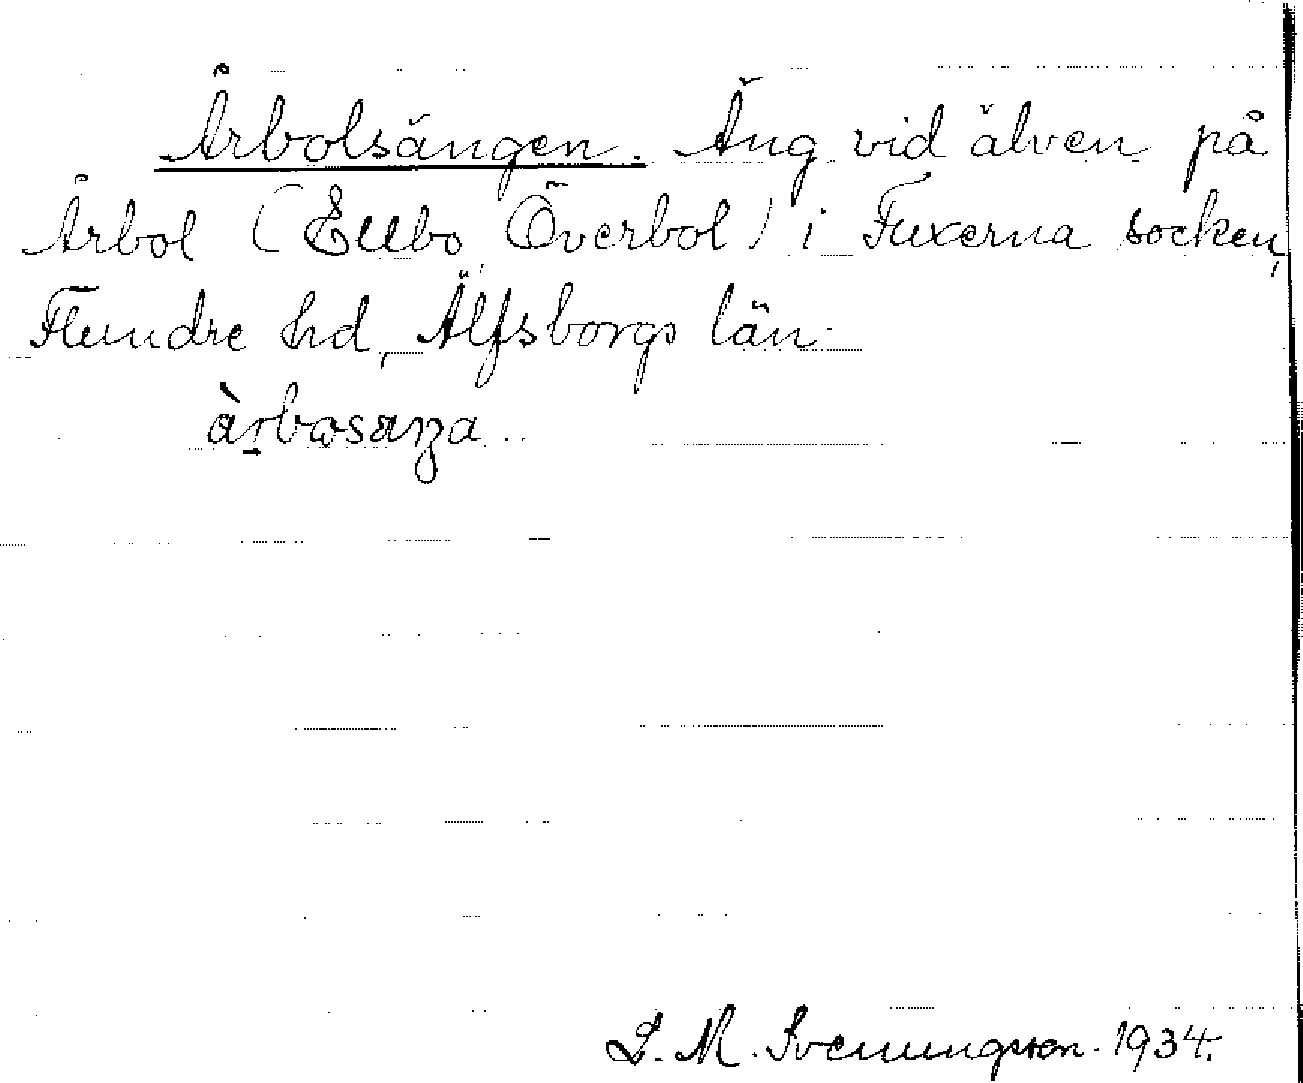 Årbolsängen. Äng vid älven på
Årbol (Ellbo Överbol) i Fuxerna socken,
Flundre hd, Älfsborgs län.
àrbosaŋa
S. M. Svenungsson. 1934.